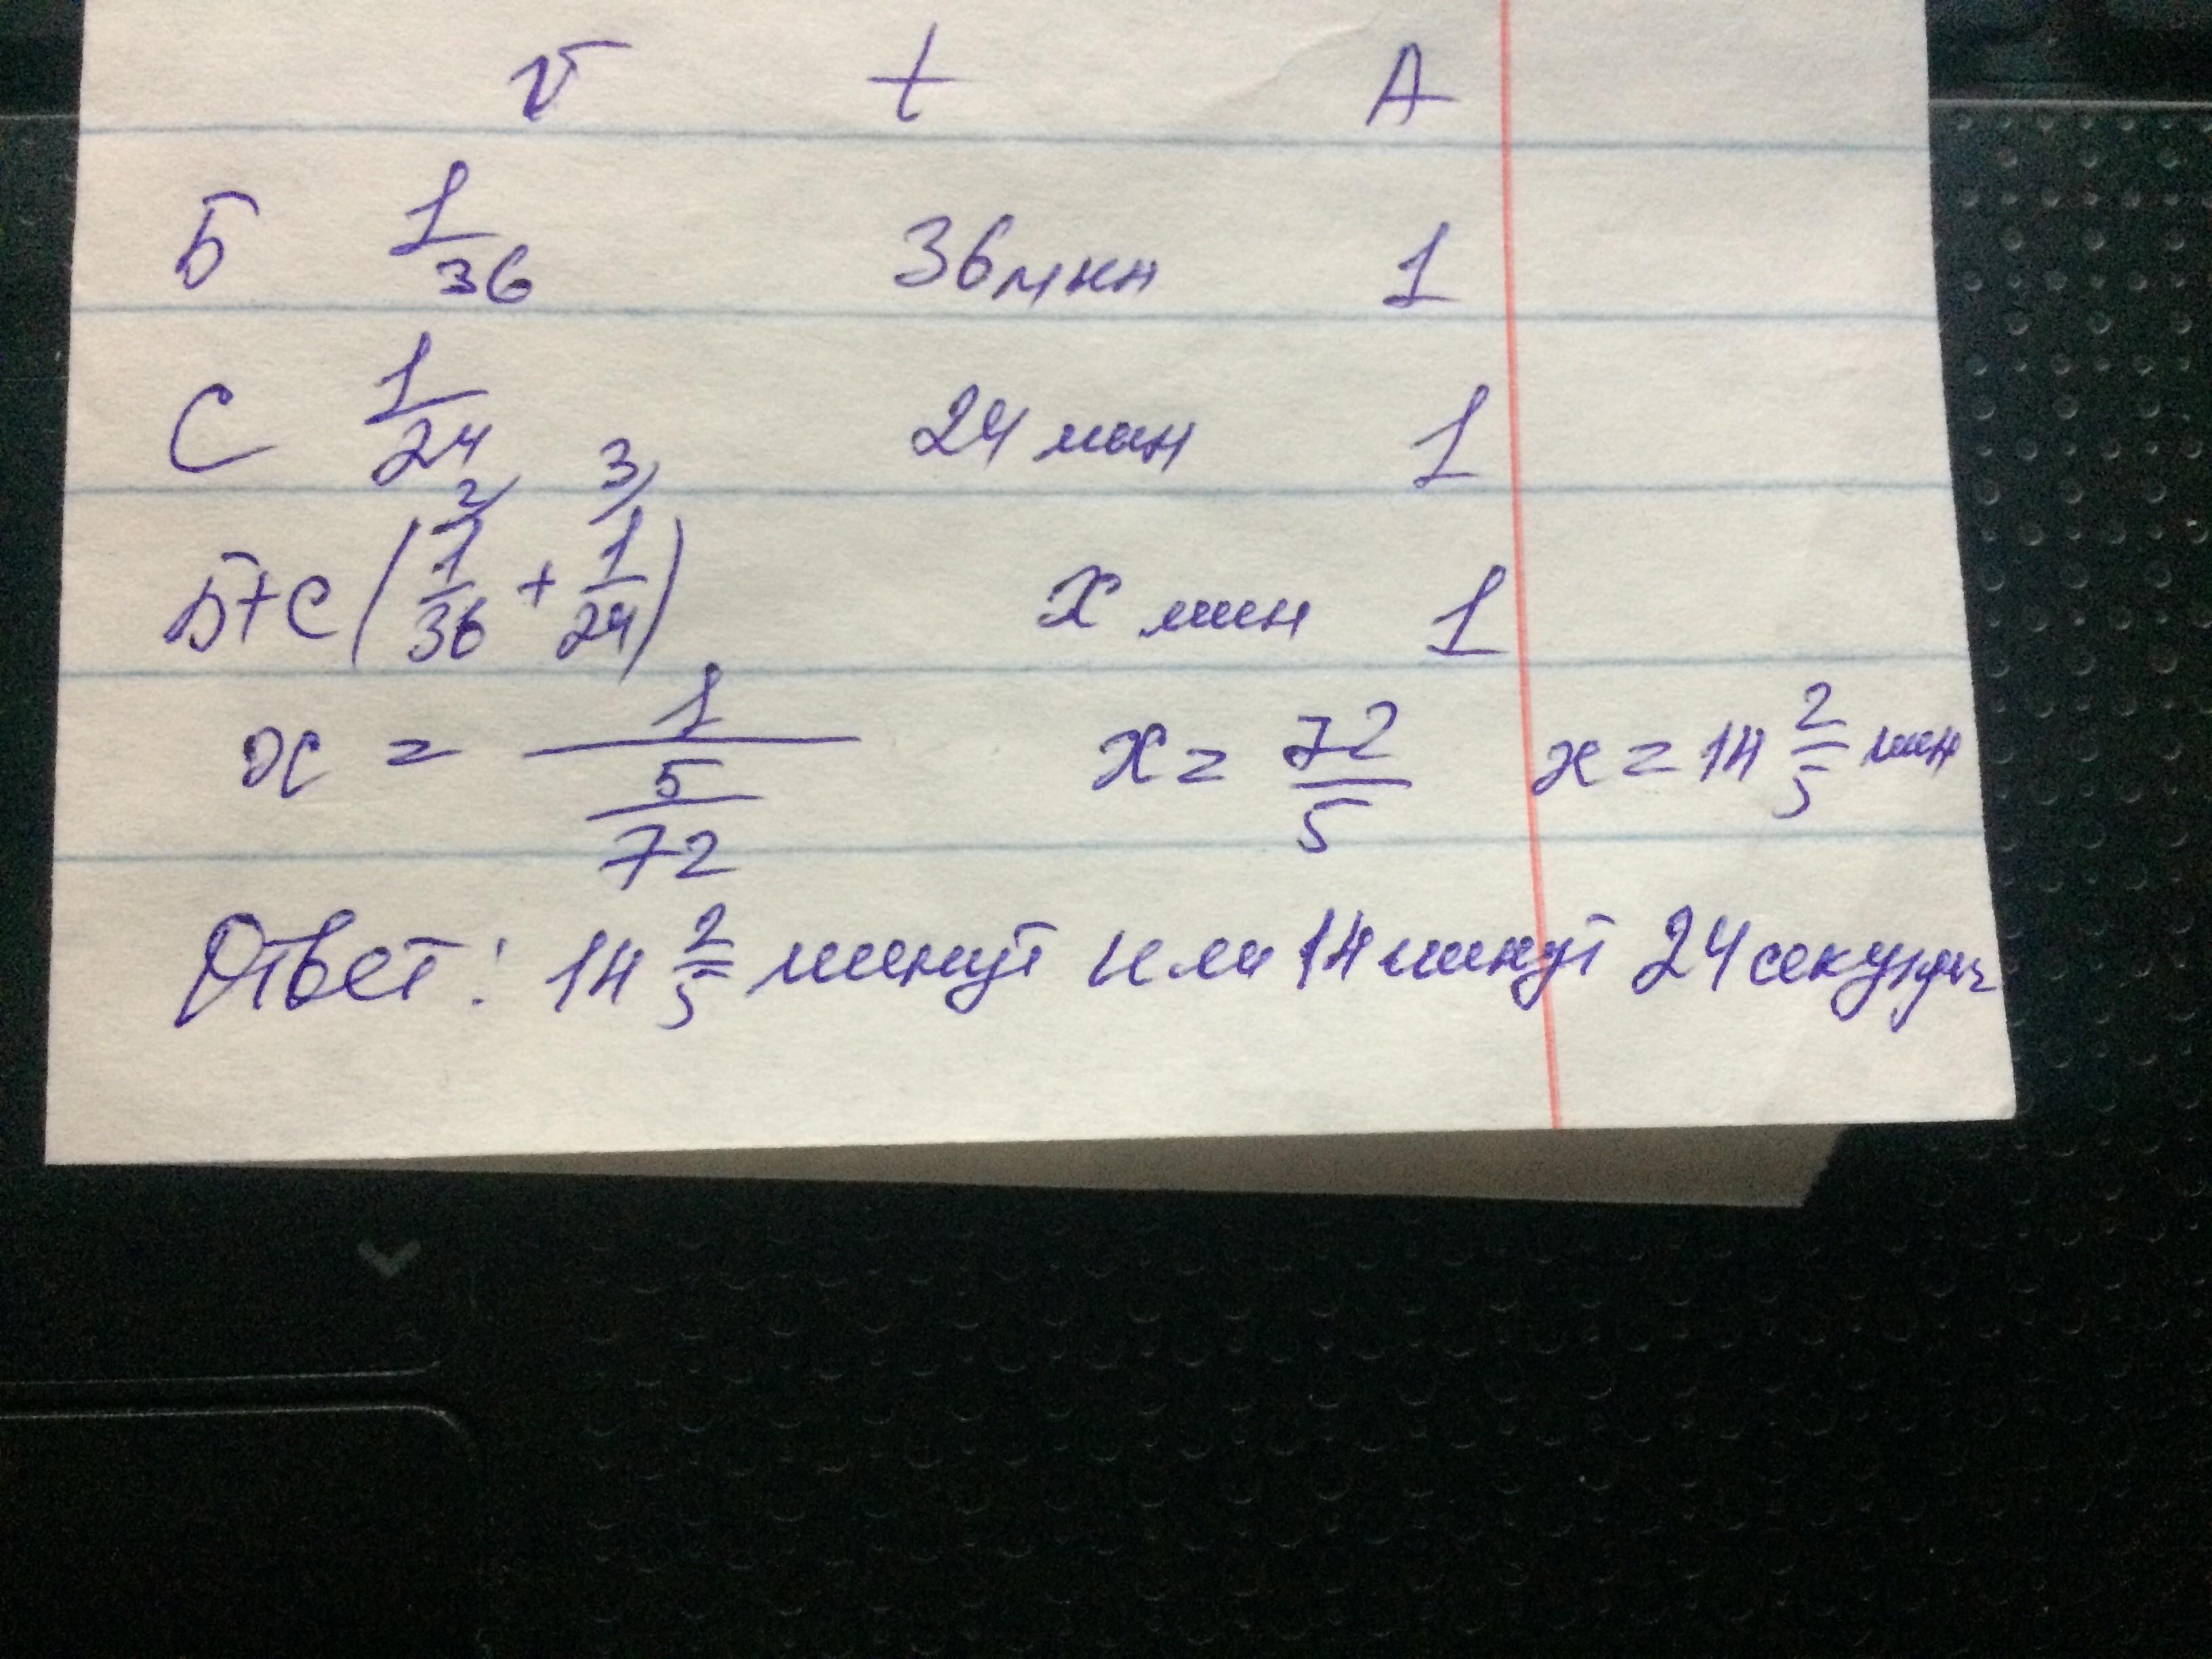 v t A
Б 1/36 36 мин 1
С 1/24 24 мин 1
2/ 3/
Б+С (1/36 + 1/24) х мин 1
х = 1/(5/72) х = 72/5 х = 14 2/5 мин
Ответ: 14 2/5 минут или 14 минут 24 секунды